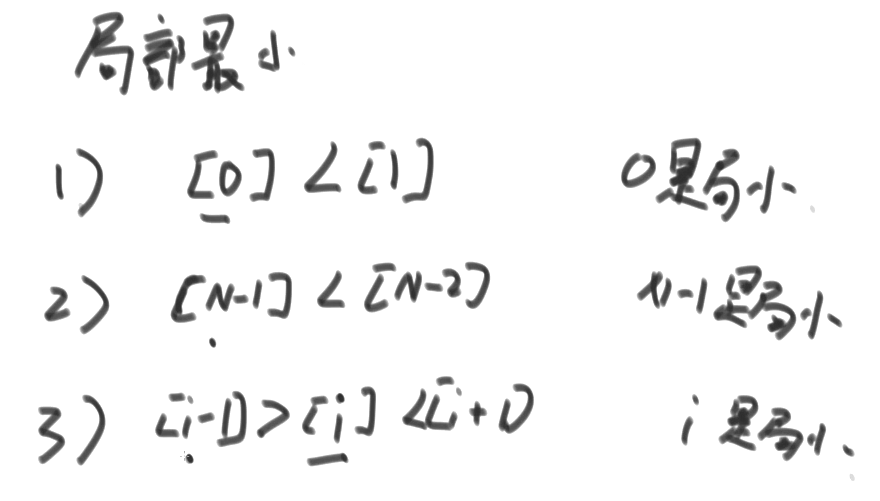 局部最小
1) [0] < [1] 0是局小
2) [N-1] < [N-2] N-1是局小
3) [i-1] > [i] < [i+1] i是局小